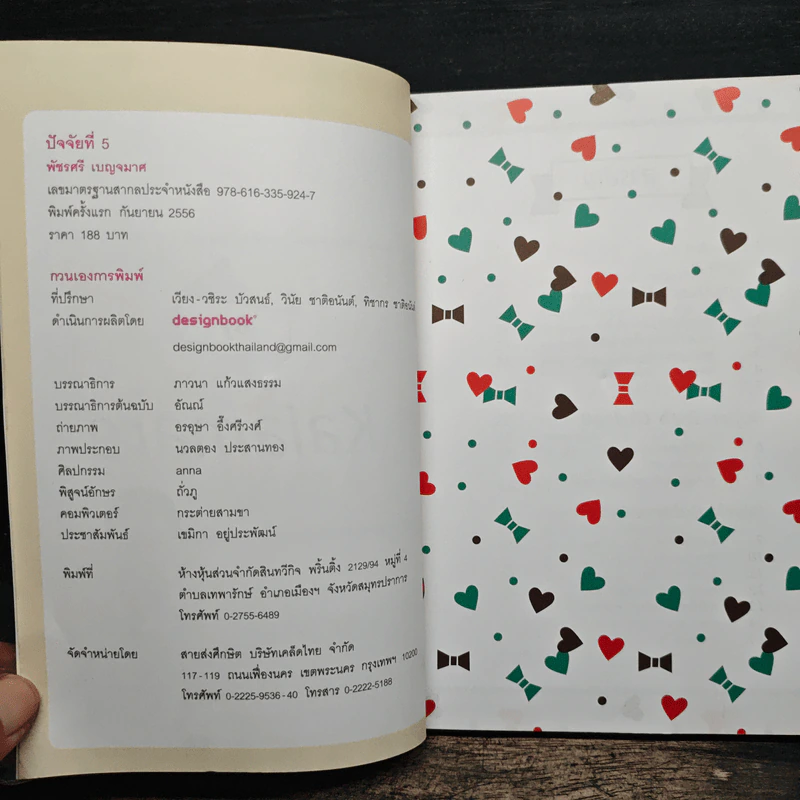 ปัจจัยที่ 5
พัชรศรี เบญจมาศ
เลขมาตรฐานสากลประจำหนังสือ 978-616-335-924-7
พิมพ์ครั้งแรก กันยายน 2556
ราคา 188 บาท
กวนเองการพิมพ์
ที่ปรึกษา เวียง-วชิระ บัวสนธ์, วินัย ชาติอนันต์, ทิชากร ชาติอนันต์
ดำเนินการผลิตโดย designbook®
designbookthailand@gmail.com
บรรณาธิการ ภาวนา แก้วแสงธรรม
บรรณาธิการต้นฉบับ อัณณ์
ถ่ายภาพ อรอุษา อึ๊งศรีวงศ์
ภาพประกอบ นวลตอง ประสานทอง
ศิลปกรรม anna
พิสูจน์อักษร ถั่วภู
คอมพิวเตอร์ กระต่ายสามขา
ประชาสัมพันธ์ เขมิกา อยู่ประพัฒน์
พิมพ์ที่ ห้างหุ้นส่วนจำกัดสินทวีกิจ พริ้นติ้ง 2129/94 หมู่ที่ 4
ตำบลเทพารักษ์ อำเภอเมืองฯ จังหวัดสมุทรปราการ
โทรศัพท์ 0-2755-6489
จัดจำหน่ายโดย สายส่งศึกษิต บริษัทเคล็ดไทย จำกัด
117-119 ถนนเฟื่องนคร เขตพระนคร กรุงเทพฯ 10200
โทรศัพท์ 0-2225-9536-40 โทรสาร 0-2222-5188